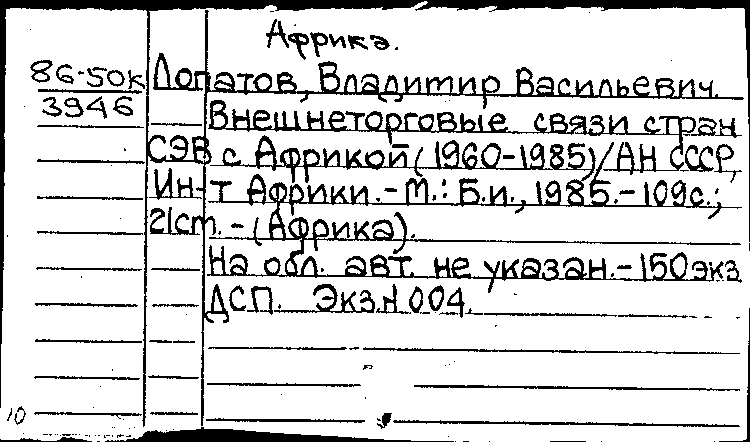 Африка.
86-50к Лопатов, Владимир Васильевич.
3946 Внешнеторговые связи стран
СЭВ с Африкой (1960-1985)/АН СССР,
Ин-т Африки.-М.: Б.и., 1985.-109с.;
21см.-(Африка).
На обл. авт. не указан.-150экз
ДСП. Экз.N 004.
10